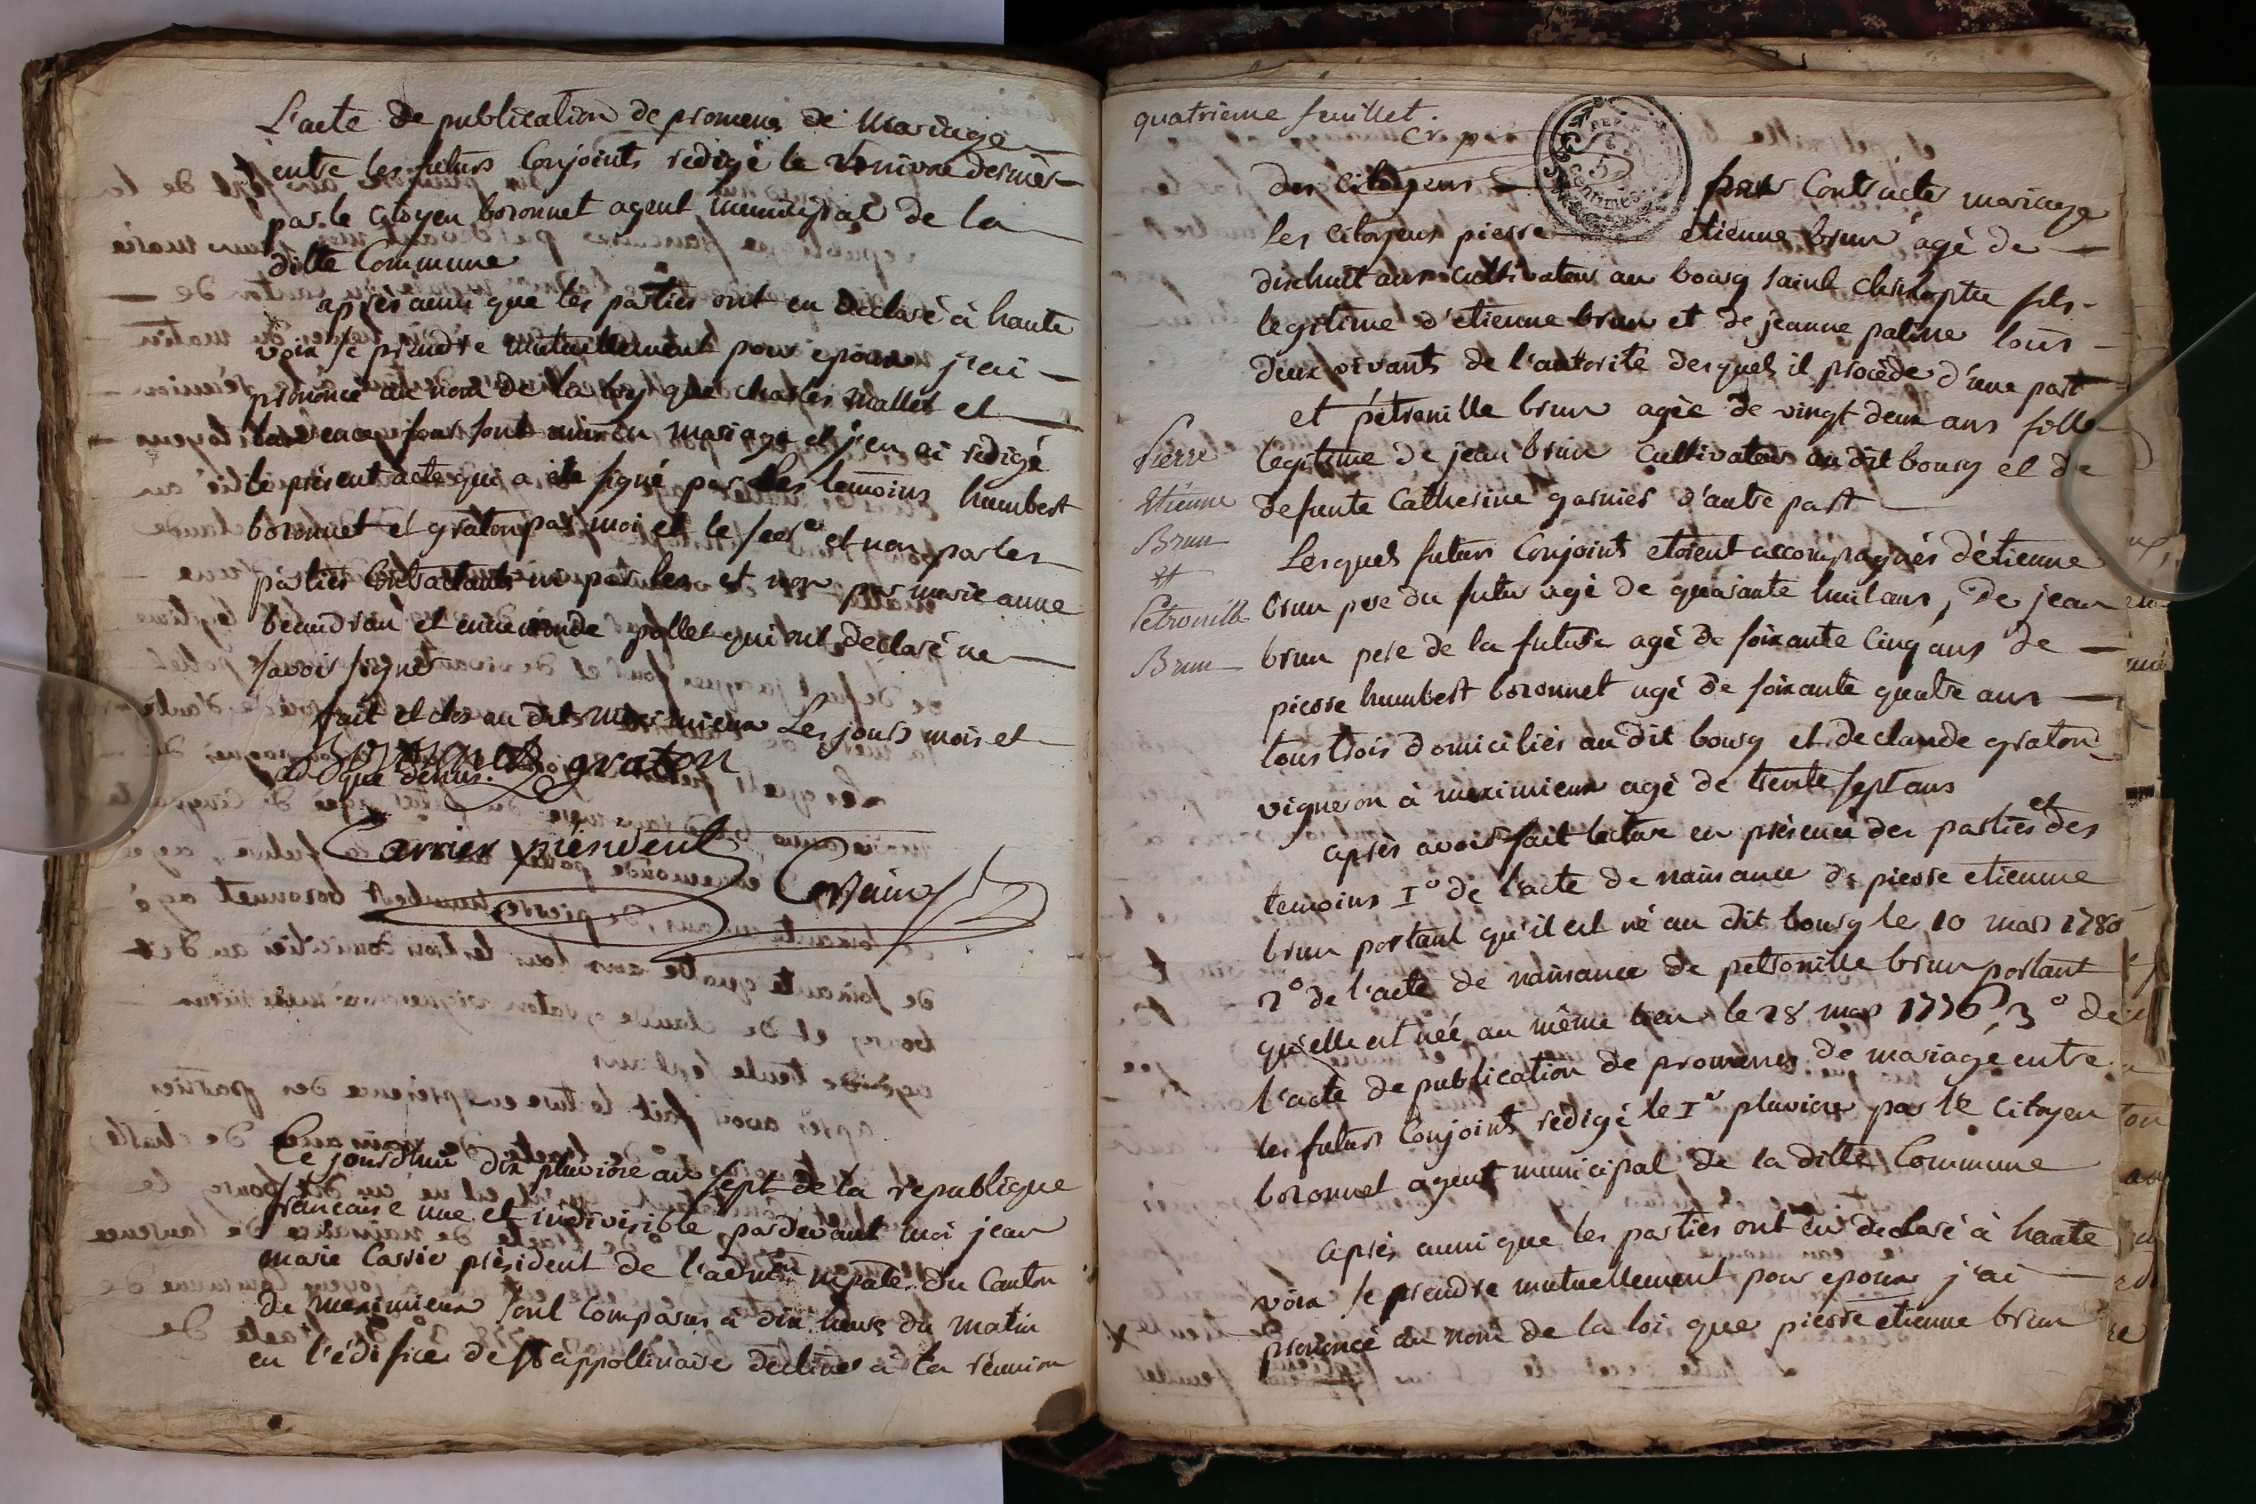 L'acte de publication de promeses de Mariage
entre les futurs Conjoints redigé le nivose dernier
par le citoyen boronnet agent municipal de la
ditte Commune
après aussi que les parties ont eu declaré à haute
voix se prendre mutuellement pour epoux j'ai
prononcé au nom de la loy que charles mallet et
sont unis en mariage et j'en ai redigé
le présent acte qui a été signé par les temoins humbert
boronnet et graton par moi et le secre et non par les
parties Contractants ni par les et non par marie anne
beaudran et ennemonde pollet qui ont declaré ne
savoir signer
fait et clos au dit meximieux Les jours mois et
an que dessus.
Boronnet graton
Carrier président
Ce jourdhui dix pluviose an sept de la republique
francaise une et indivisible pardevant moi jean
marie Carrier président de l'admon mpale du Canton
de meximieux sont Comparus à dix heures du matin
en l'édifice de st appollinaire destiné à la réunion
quatrieme feuillet.
Cr. p.
des citoyens pour Contracter mariage
5 centimes
les citoyens pierre etienne brun agé de
dixhuit ans cultivateur au bourg saint christophe fils
legitime d'etienne brun et de jeanne paline tous
deux vivants de l'autorité desquels il procède d'une part
et pétronille brun agée de vingt deux ans fille
legitime de jean brun Cultivateur au dit bourg et de
defunte Catherine garnier d'autre part
Pierre
Etienne
Brun
et
Pétronille
Brun
Lesquels futurs Conjoints etoient accompagnés d'étienne
brun pere du futur agé de quarante huit ans, de jean
brun pere de la future agé de soixante Cinq ans de
pierre humbert boronnet agé de soixante quatre ans
tous trois domiciliés au dit bourg et de claude graton
vigneron à meximieux agé de trente sept ans
après avoir fait lecture en présence des parties et des
temoins 1° de l'acte de naissance de pierre etienne
brun portant qu'il est né au dit bourg le 10 mars 1780
2° de l'acte de naissance de petronille brun portant
qu'elle est née au même lieu le 28 mars 1776, 3° de
l'acte de publication de promesses de mariage entre
les futurs Conjoints redigé le 1er pluviose par le Citoyen
boronnet agent municipal de la ditte Commune
après aussi que les parties ont eu declaré à haute
voix se prendre mutuellement pour epoux j'ai
prononcé au nom de la loi que pierre etienne brun